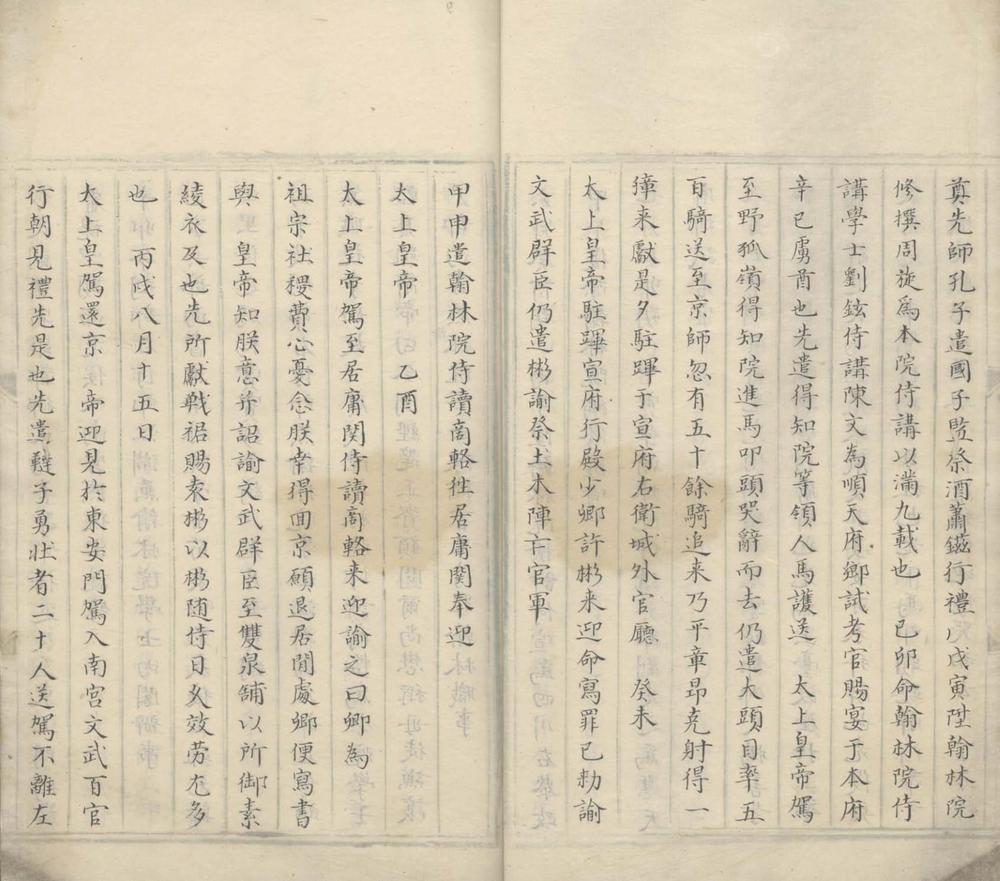 奠先師孔子遣國子監祭酒蕭鎡行禮〇戊寅陞翰林院
修撰周旋為本院侍講以滿九載也〇己卯命翰林院侍
講學士劉鉉侍講陳文為順天府鄉試考官賜宴于本府
辛巳虜酋也先遣得知院等領人馬護送太上皇帝駕
至野狐嶺得知院進馬叩頭哭辭而去仍遣大頭目率五
百騎送至京師忽有五十餘騎追来乃平章昂克射得一
獐来獻是夕駐蹕于宣府右衛城外官廳〇癸未
太上皇帝駐蹕宣府行殿少卿許彬来迎命寫罪己勑諭
文武群臣仍遣彬諭祭土木陣亡官軍
甲申遣翰林院侍讀商輅徃居庸関奉迎
太上皇帝〇乙酉
太上皇帝駕至居庸関侍讀商輅来迎諭之曰卿為
祖宗社稷費心憂念朕幸得回京願退居閒處卿便寫書
與皇帝知朕意并詔諭文武群臣至雙泉舖以所御素
綾衣及也先所獻戦裾賜袁彬以彬随侍日乆效劳尤多
也〇丙戌八月十五日
太上皇駕還京帝迎見於東安門駕入南宮文武百官
行朝見禮先是也先遣韃子勇壯者二十人送駕不離左